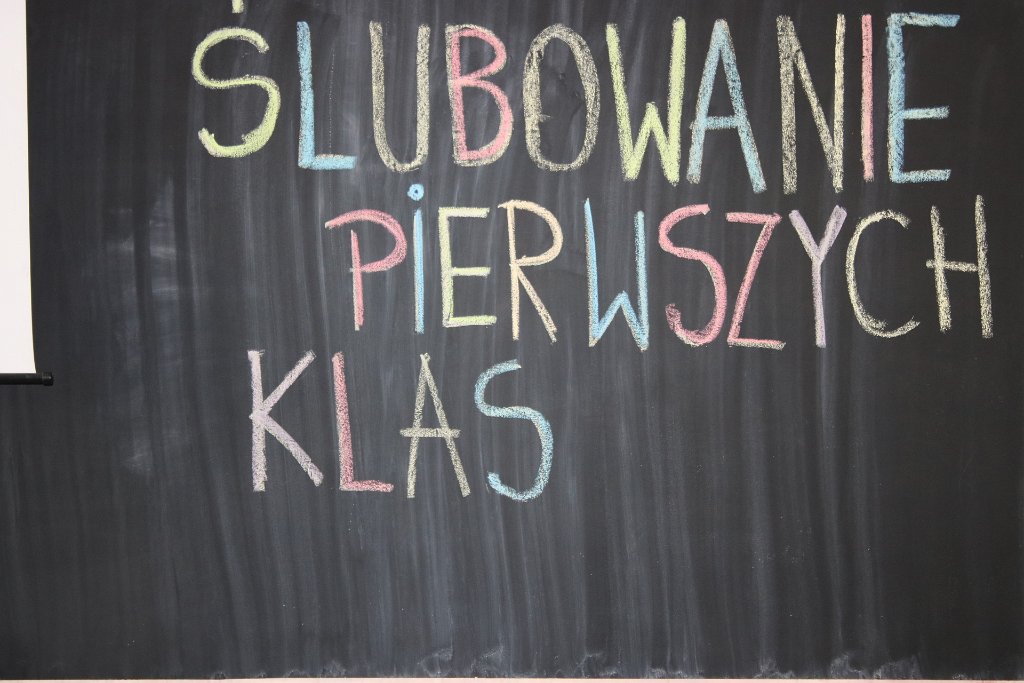 ŚLUBOWANIE
PiERWSZYCH
KLAS